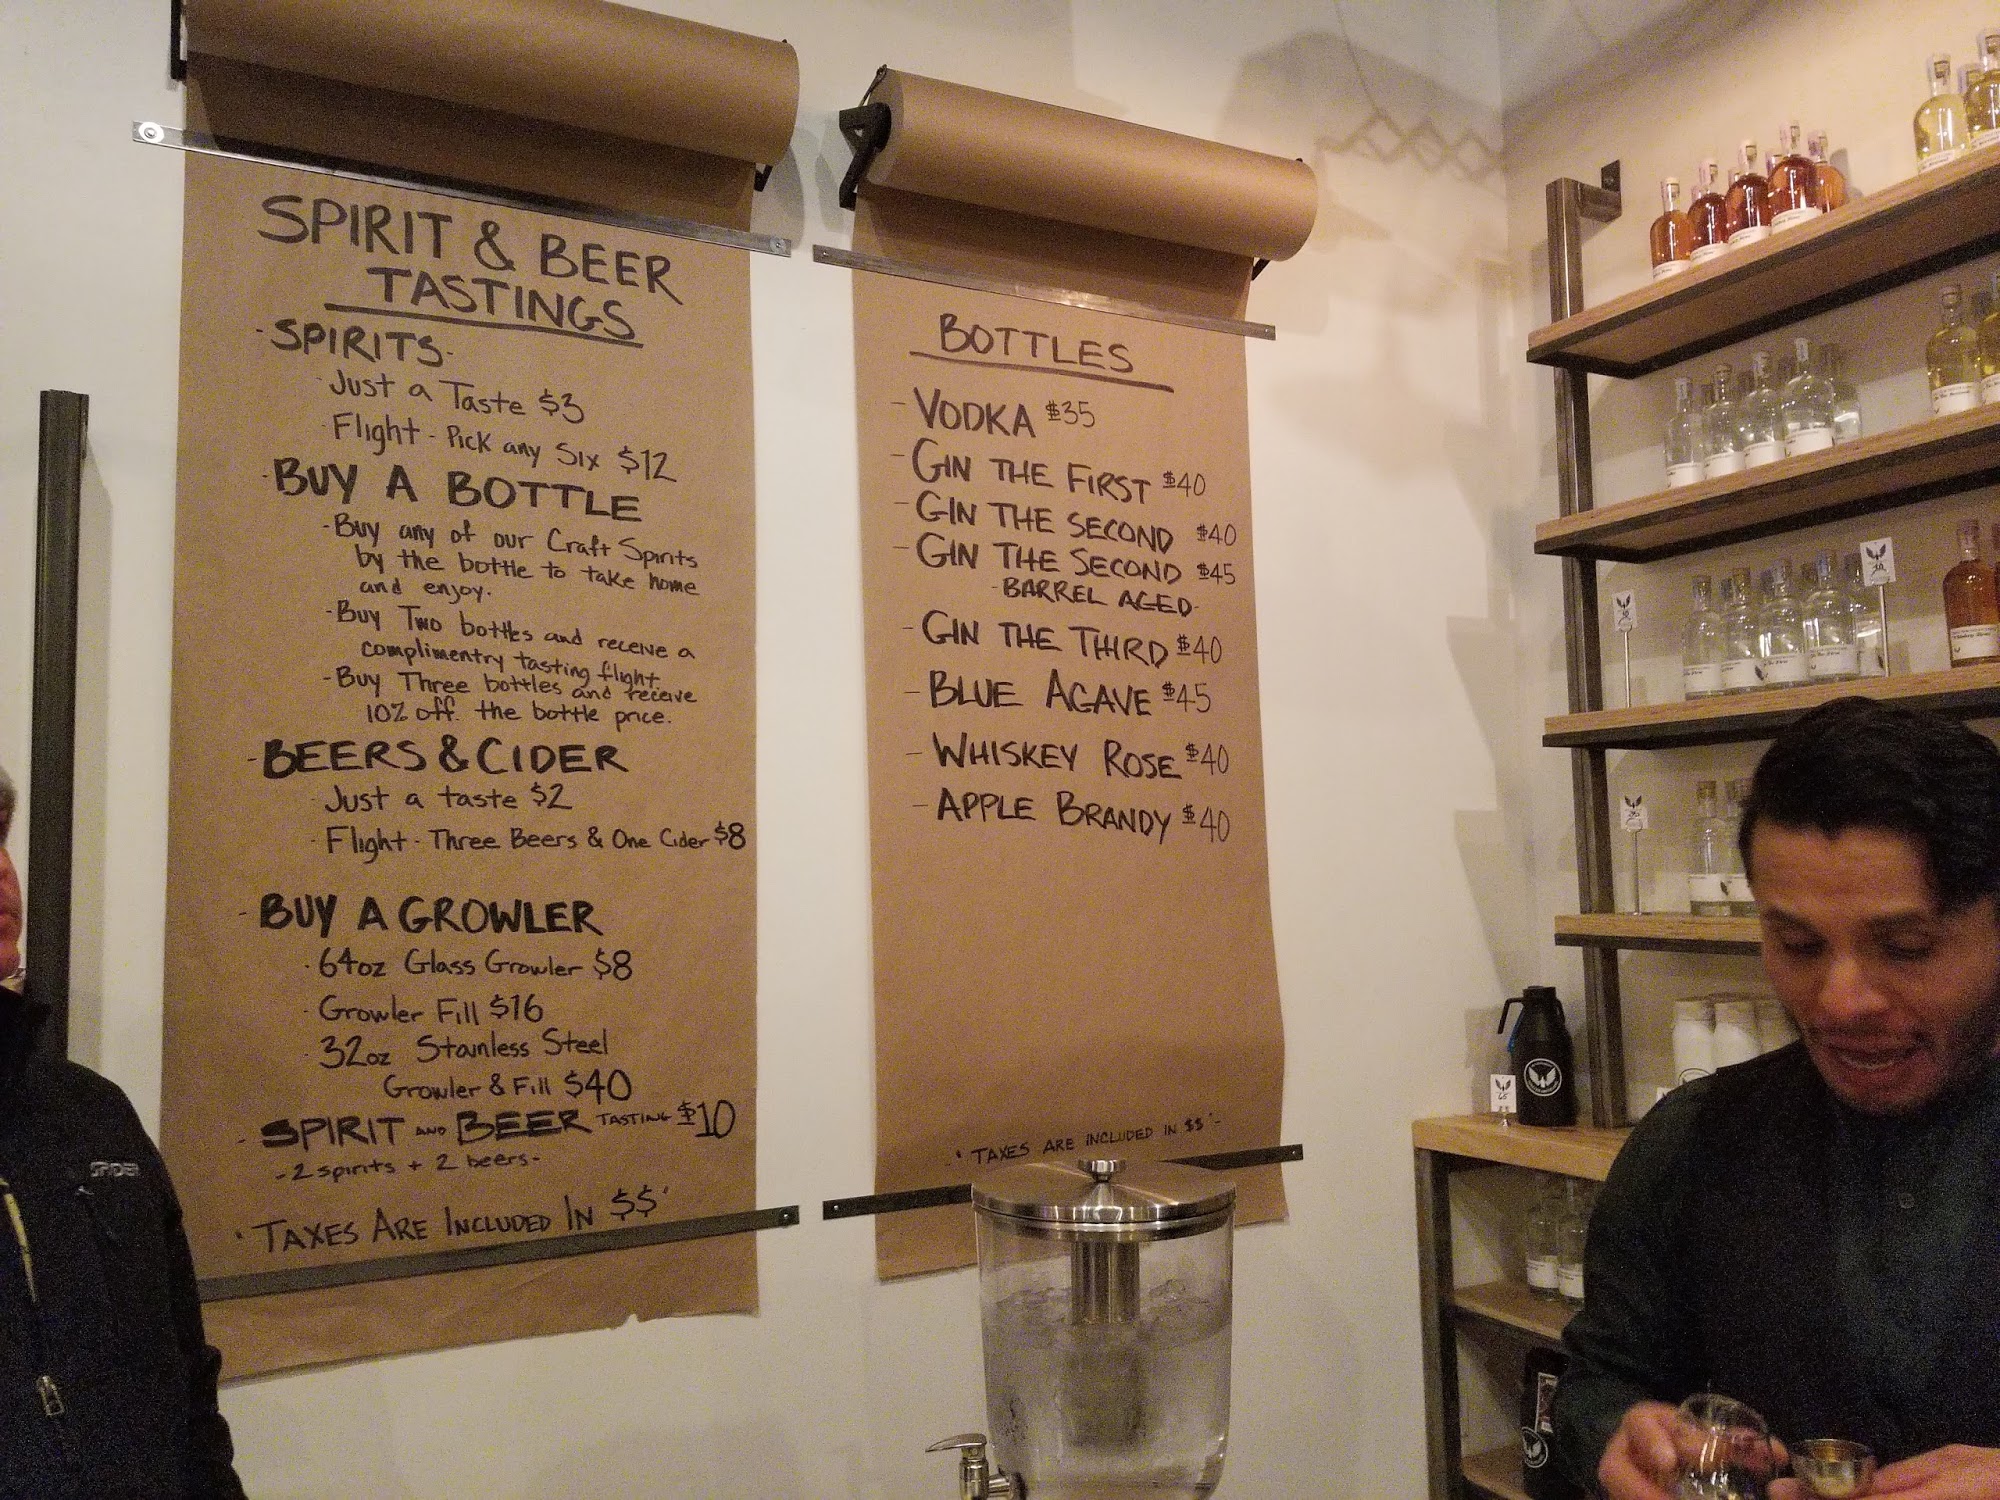 SPIRIT & BEER
TASTINGS
- SPIRITS -
· Just a Taste $3
· Flight - Pick any Six $12
- BUY A BOTTLE
- Buy any of our Craft Spirits
by the bottle to take home
and enjoy.
- Buy Two bottles and receive a
complimentry tasting flight
- Buy Three bottles and receive
10% off the bottle price.
- BEERS & CIDER
· Just a taste $2
· Flight - Three Beers & One Cider $8
- BUY A GROWLER
· 64oz Glass Growler $8
· Growler Fill $16
· 32oz Stainless Steel
Growler & Fill $40
- SPIRIT AND BEER TASTING $10
- 2 spirits + 2 beers -
' TAXES ARE INCLUDED IN $$ '
BOTTLES
- VODKA $35
- GIN THE FIRST $40
- GIN THE SECOND $40
- GIN THE SECOND $45
- BARREL AGED -
- GIN THE THIRD $40
- BLUE AGAVE $45
- WHISKEY ROSE $40
- APPLE BRANDY $40
- ' TAXES ARE INCLUDED IN $$ ' -
SPYDER
65